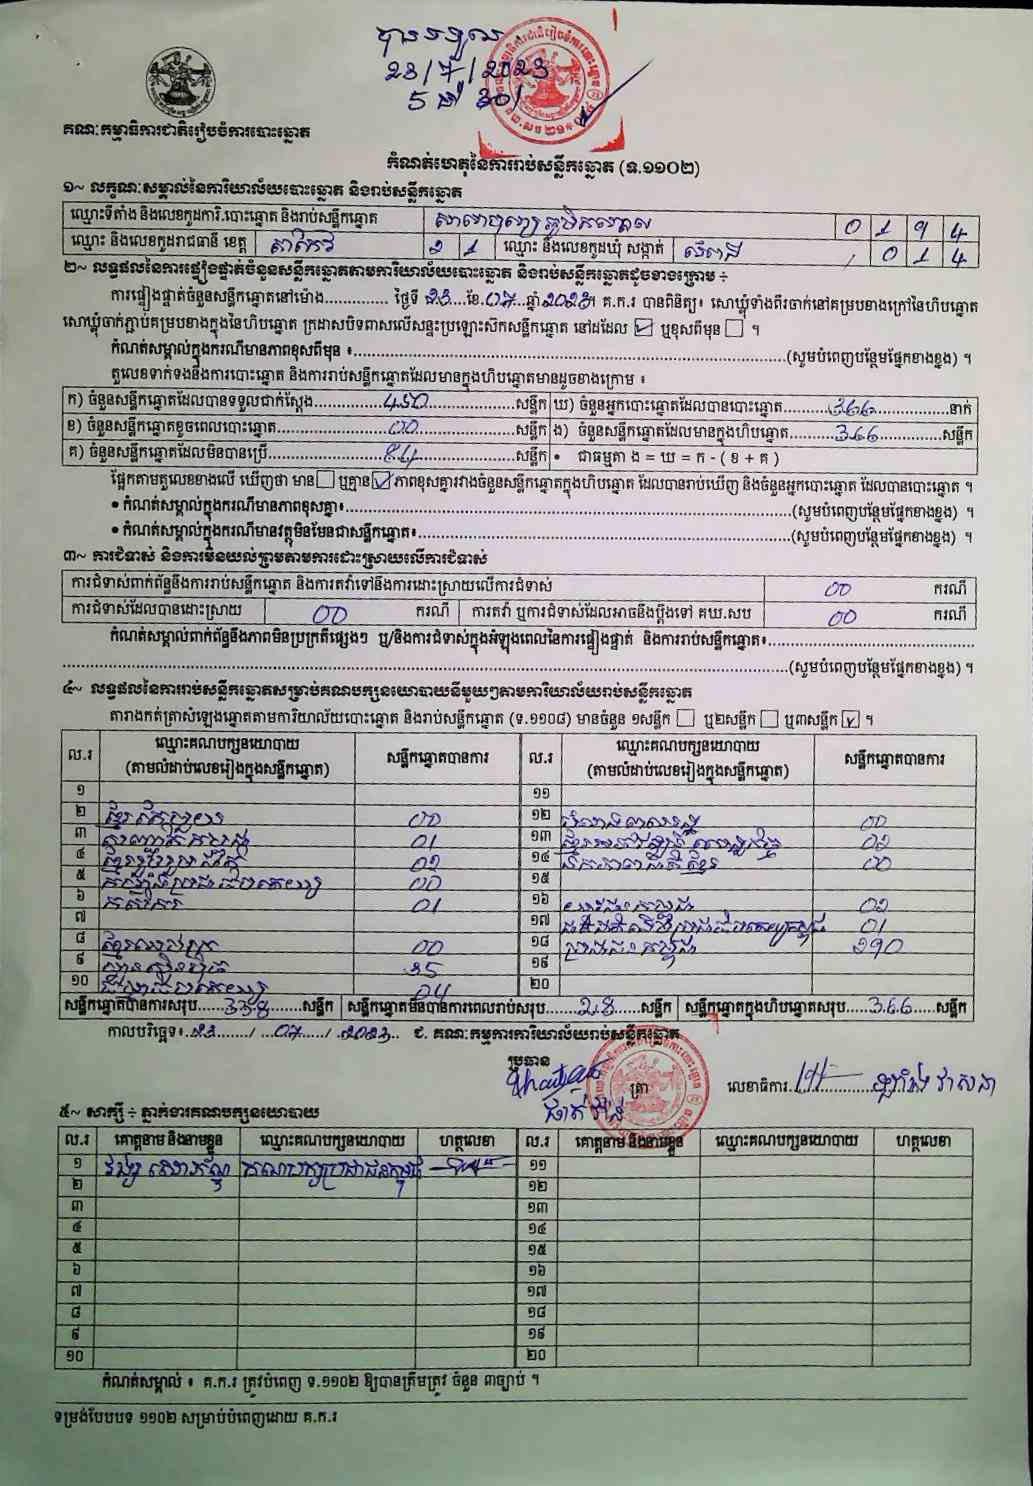 បានទទួល
23/7/2023
5 30
គណៈកម្មាធិការជាតិរៀបចំការបោះឆ្នោត
កំណត់ហេតុនៃការរាប់សន្លឹកឆ្នោត (ទ.១១០២)
១~ លក្ខណៈសម្គាល់នៃការិយាល័យបោះឆ្នោត និងរាប់សន្លឹកឆ្នោត
ឈ្មោះទីតាំង និងលេខកូដការិ.បោះឆ្នោត និងរាប់សន្លឹកឆ្នោត 0 1 9 4
ឈ្មោះ និងលេខកូដរាជធានី ខេត្ត តាកែវ 2 1 ឈ្មោះ និងលេខកូដឃុំ សង្កាត់ 0 1 4
២~ លទ្ធផលនៃការផ្ទៀងផ្ទាត់ចំនួនសន្លឹកឆ្នោតតាមការិយាល័យបោះឆ្នោត និងរាប់សន្លឹកឆ្នោតដូចខាងក្រោម ÷
ការផ្ទៀងផ្ទាត់ចំនួនសន្លឹកឆ្នោតនៅម៉ោង.............. ថ្ងៃទី 23 ខែ 07 ឆ្នាំ 2023។ គ.ក.រ បានពិនិត្យ៖ សោឃ្លុំទាំងពីរចាក់នៅគម្របខាងក្រៅនៃហិបឆ្នោត
សោឃ្លុំចាក់ភ្ជាប់គម្របខាងក្នុងនៃហិបឆ្នោត ក្រដាសបិទពាសលើសន្ទះប្រឡោះសិកសន្លឹកឆ្នោត នៅដដែល ☑ ឬខុសពីមុន ☐ ។
កំណត់សម្គាល់ក្នុងករណីមានភាពខុសពីមុន ៖..........(សូមបំពេញបន្ថែមផ្នែកខាងខ្នង) ។
តួលេខទាក់ទងនឹងការបោះឆ្នោត និងការរាប់សន្លឹកឆ្នោតដែលមានក្នុងហិបឆ្នោតមានដូចខាងក្រោម ៖
ក) ចំនួនសន្លឹកឆ្នោតដែលបានទទួលជាក់ស្តែង 450 សន្លឹក ឃ) ចំនួនអ្នកបោះឆ្នោតដែលបានបោះឆ្នោត 366 នាក់
ខ) ចំនួនសន្លឹកឆ្នោតខូចពេលបោះឆ្នោត 00 សន្លឹក ង) ចំនួនសន្លឹកឆ្នោតដែលមានក្នុងហិបឆ្នោត 366 សន្លឹក
គ) ចំនួនសន្លឹកឆ្នោតដែលមិនបានប្រើ 84 សន្លឹក • ជាធម្មតា ង = ឃ = ក - ( ខ + គ )
ផ្អែកតាមតួលេខខាងលើ ឃើញថា មាន ☐ ឬគ្មាន ☑ ភាពខុសគ្នារវាងចំនួនសន្លឹកឆ្នោតក្នុងហិបឆ្នោត ដែលបានរាប់ឃើញ និងចំនួនអ្នកបោះឆ្នោត ដែលបានបោះឆ្នោត ។
• កំណត់សម្គាល់ក្នុងករណីមានភាពខុសគ្នា៖..........(សូមបំពេញបន្ថែមផ្នែកខាងខ្នង) ។
• កំណត់សម្គាល់ក្នុងករណីមានវត្ថុមិនមែនជាសន្លឹកឆ្នោត៖..........(សូមបំពេញបន្ថែមផ្នែកខាងខ្នង) ។
៣~ ការជំទាស់ និងការមិនយល់ព្រមតាមការដោះស្រាយលើការជំទាស់
ការជំទាស់ពាក់ព័ន្ធនឹងការរាប់សន្លឹកឆ្នោត និងការតវ៉ាទៅនឹងការដោះស្រាយលើការជំទាស់ 00 ករណី
ការជំទាស់ដែលបានដោះស្រាយ 00 ករណី ការតវ៉ា ឬការជំទាស់ដែលអាចនឹងប្តឹងទៅ គឃ.សប 00 ករណី
កំណត់សម្គាល់ពាក់ព័ន្ធនឹងភាពមិនប្រក្រតីផ្សេងៗ ឬ/និងការជំទាស់ក្នុងអំឡុងពេលនៃការផ្ទៀងផ្ទាត់ និងការរាប់សន្លឹកឆ្នោត៖..........
..........(សូមបំពេញបន្ថែមផ្នែកខាងខ្នង) ។
៤~ លទ្ធផលនៃការរាប់សន្លឹកឆ្នោតសម្រាប់គណបក្សនយោបាយនីមួយៗតាមការិយាល័យរាប់សន្លឹកឆ្នោត
តារាងកត់ត្រាសំឡេងឆ្នោតតាមការិយាល័យបោះឆ្នោត និងរាប់សន្លឹកឆ្នោត (ទ.១១០៨) មានចំនួន ១សន្លឹក ☐ ឬ២សន្លឹក ☐ ឬ៣សន្លឹក ☑ ។
ល.រ ឈ្មោះគណបក្សនយោបាយ (តាមលំដាប់លេខរៀងក្នុងសន្លឹកឆ្នោត) សន្លឹកឆ្នោតបានការ ល.រ ឈ្មោះគណបក្សនយោបាយ (តាមលំដាប់លេខរៀងក្នុងសន្លឹកឆ្នោត) សន្លឹកឆ្នោតបានការ
១ ១១
២ 00 ១២ 00
៣ 01 ១៣ 02
៤ 02 ១៤ 00
៥ 00 ១៥
៦ 01 ១៦ 02
៧ ១៧ 01
៨ 00 ១៨ ប្រជាជនកម្ពុជា 290
៩ 35 ១៩
១០ 04 ២០
សន្លឹកឆ្នោតបានការសរុប 338 សន្លឹក សន្លឹកឆ្នោតមិនបានការពេលរាប់សរុប 28 សន្លឹក សន្លឹកឆ្នោតក្នុងហិបឆ្នោតសរុប 366 សន្លឹក
កាលបរិច្ឆេទ៖ 23 / 07 / 2023 ជ. គណៈកម្មការការិយាល័យរាប់សន្លឹកឆ្នោត
ប្រធាន ត្រា លេខាធិការ
៥~ សាក្សី ÷ ភ្នាក់ងារគណបក្សនយោបាយ
ល.រ គោត្តនាម និងនាមខ្លួន ឈ្មោះគណបក្សនយោបាយ ហត្ថលេខា ល.រ គោត្តនាម និងនាមខ្លួន ឈ្មោះគណបក្សនយោបាយ ហត្ថលេខា
១ គណបក្សប្រជាជនកម្ពុជា ១១
២ ១២
៣ ១៣
៤ ១៤
៥ ១៥
៦ ១៦
៧ ១៧
៨ ១៨
៩ ១៩
១០ ២០
កំណត់សម្គាល់ ៖ គ.ក.រ ត្រូវបំពេញ ទ.១១០២ ឱ្យបានត្រឹមត្រូវ ចំនួន ៣ច្បាប់ ។
ទម្រង់បែបបទ ១១០២ សម្រាប់បំពេញដោយ គ.ក.រ